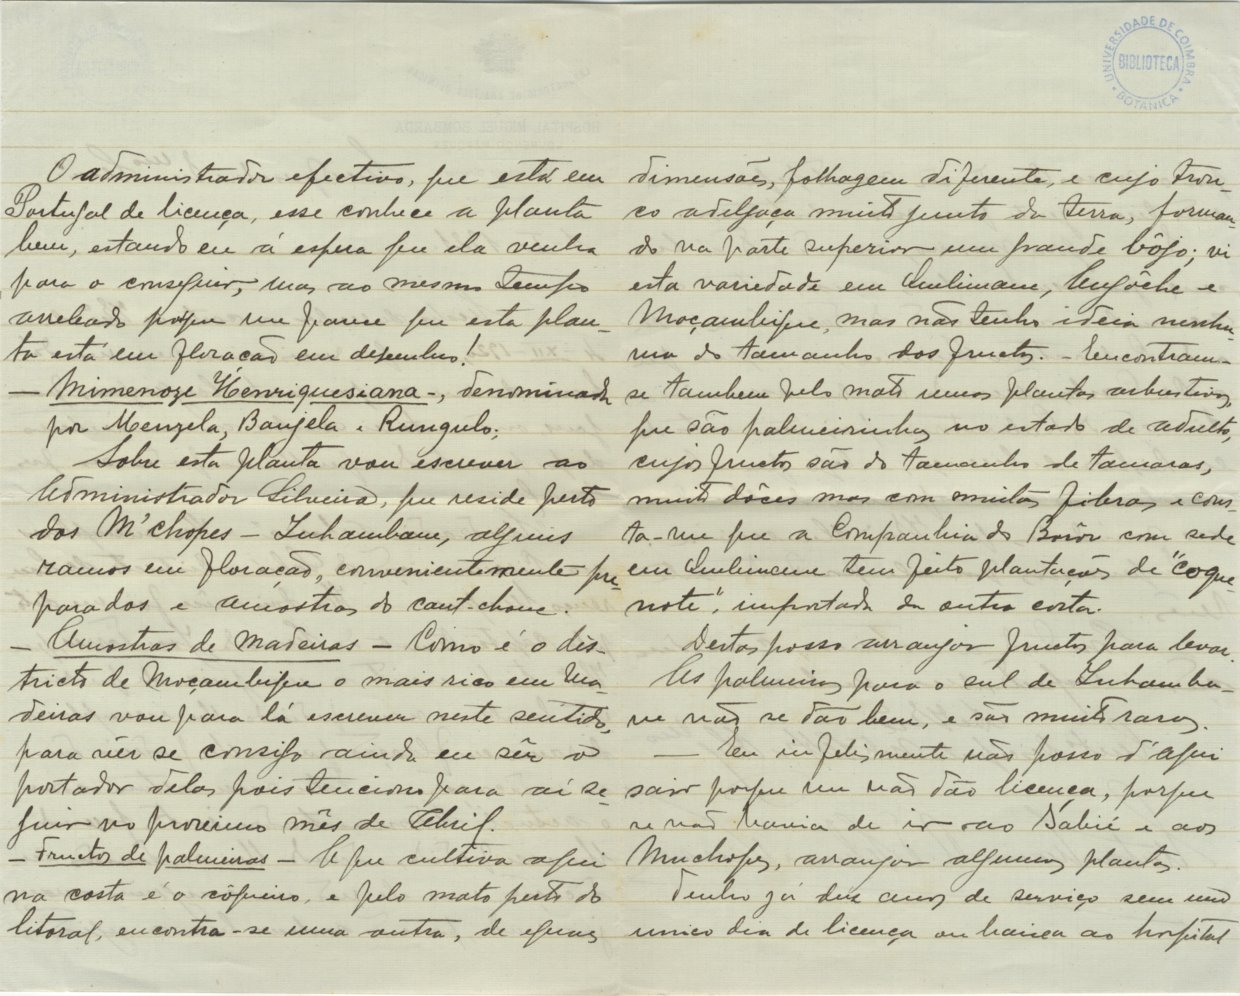 O administrador efectivo, que está em
Portugal de licença, esse conhece a planta
bem, estando eu á espera que ela venha
para o conseguir, mas ao mesmo tempo
arreliado porque me parece que esta plan-
ta está em floração em dezembro!
— Mimenoze Henriquesiana -, denominada
por Menzela, Banjela e Rungulo;
Sobre esta planta vou escrever ao
Administrador Silveira, que reside perto
dos M'chopes — Inhambane, alguns
ramos em floração, convenientemente pre-
parados e amostras do caut-chouc.
— Amostras de madeiras — Como é o dis-
tricto de Moçambique o mais rico em ma-
deiras vou para lá escrever neste sentido,
para vêr se consigo ainda eu sêr o
portador delas pois tenciono para aí se-
guir no proximo mês de Abril.
— Fructos de palmeiras — A que cultiva aqui
na costa é o côqueiro, e pelo mato perto do
litoral, encontra-se uma outra, de eguaes
dimensões, folhagem diferente, e cujo tron-
co adelgaça muito junto da terra, forman-
do na parte superior um grande bôjo; vi
esta variedade em Quelimane, Angôche e
Moçambique, mas não tenho ideia nenhu-
ma do tamanho dos fructos. — Encontram-
se tambem pelo mato umas plantas arbustivas,
que são palmeirinhas no estado de adulto,
cujos fructos são do tamanho de tamaras,
muito dôces mas com muitas fibras e cons-
ta-me que a Companhia do Boror com sede
em Quelimane tem feito plantações de "coque-
note", importada da outra costa.
Destas posso arranjar fructos para levar.
As palmeiras para o sul de Inhamba-
ne não se dão bem, e são muito raras.
— Eu infelizmente não posso d'aqui
sair porque me não dão licença, porque
se não havia de ir ao Sabié e aos
Muchopes, arranjar algumas plantas.
Tenho já dois anos de serviço sem um
unico dia de licença ou baixa ao hospital
UNIVERSIDADE DE COIMBRA
BIBLIOTECA
BOTANICA